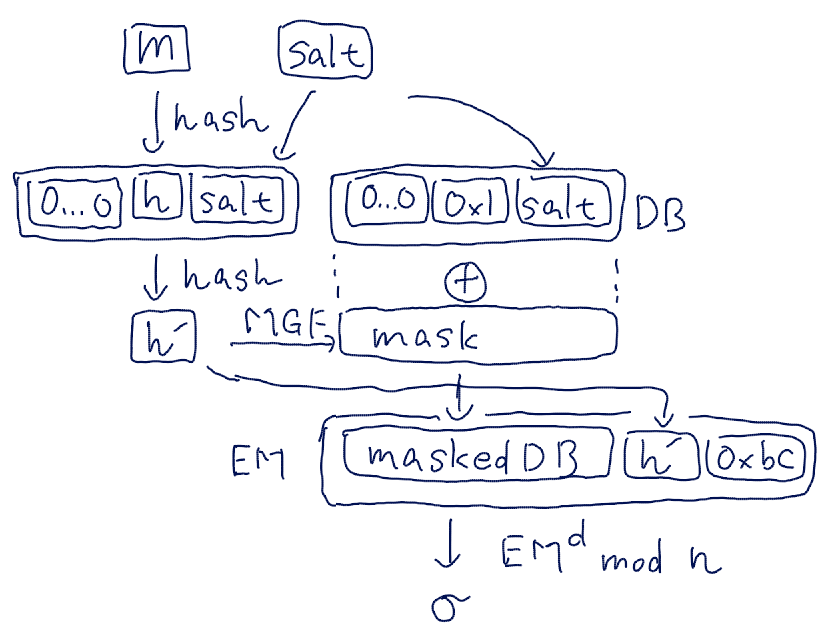 m salt
hash
0...0 h salt 0...0 0x1 salt DB
hash ⊕
h′ MGF mask
EM maskedDB h′ 0xbc
EM^d mod n
σ